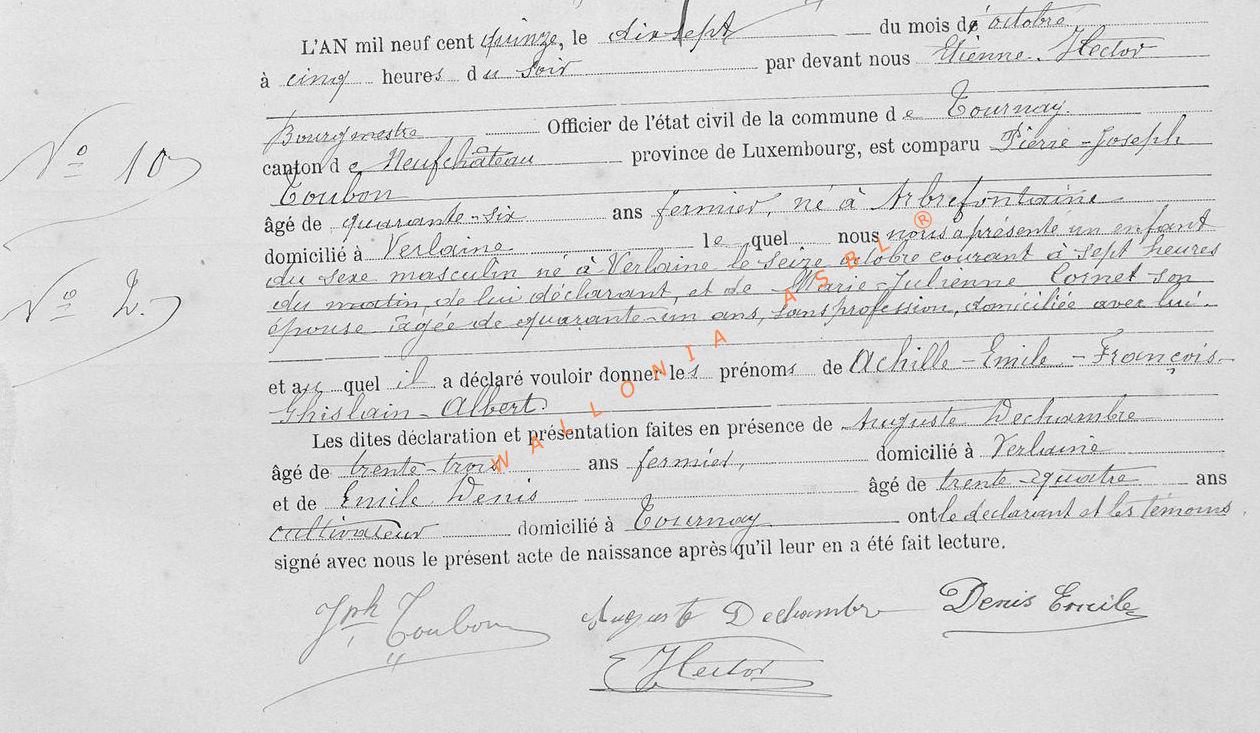 L'AN mil neuf cent quinze, le dix sept du mois de octobre,
à cinq heures du soir par devant nous Etienne Hector
Bourgmestre Officier de l'état civil de la commune de Tournay.
N° 10
canton de Neufchâteau province de Luxembourg, est comparu Pierre-Joseph
Toubon
âgé de quarante-six ans fermier, né à Arbrefontaine
domicilié à Verlaine lequel nous nous a présenté un enfant
du sexe masculin né à Verlaine le seize octobre courant à sept heures
N° 2.
du matin, de lui déclarant, et de Marie-Julienne Cornet son
épouse âgée de quarante-un ans, sans profession, domiciliée avec lui.
et auquel il a déclaré vouloir donner les prénoms de Achille-Emile-François-
Ghislain-Albert.
Les dites déclaration et présentation faites en présence de Auguste Dechambre
âgé de trente-trois ans fermier, domicilié à Verlaine
et de Emile Denis âgé de trente-quatre ans
cultivateur domicilié à Tournay ont le déclarant et les témoins
signé avec nous le présent acte de naissance après qu'il leur en a été fait lecture.
Jph Toubon Auguste Dechambre Denis Emile
Hector
WALLONIA ASBL ®